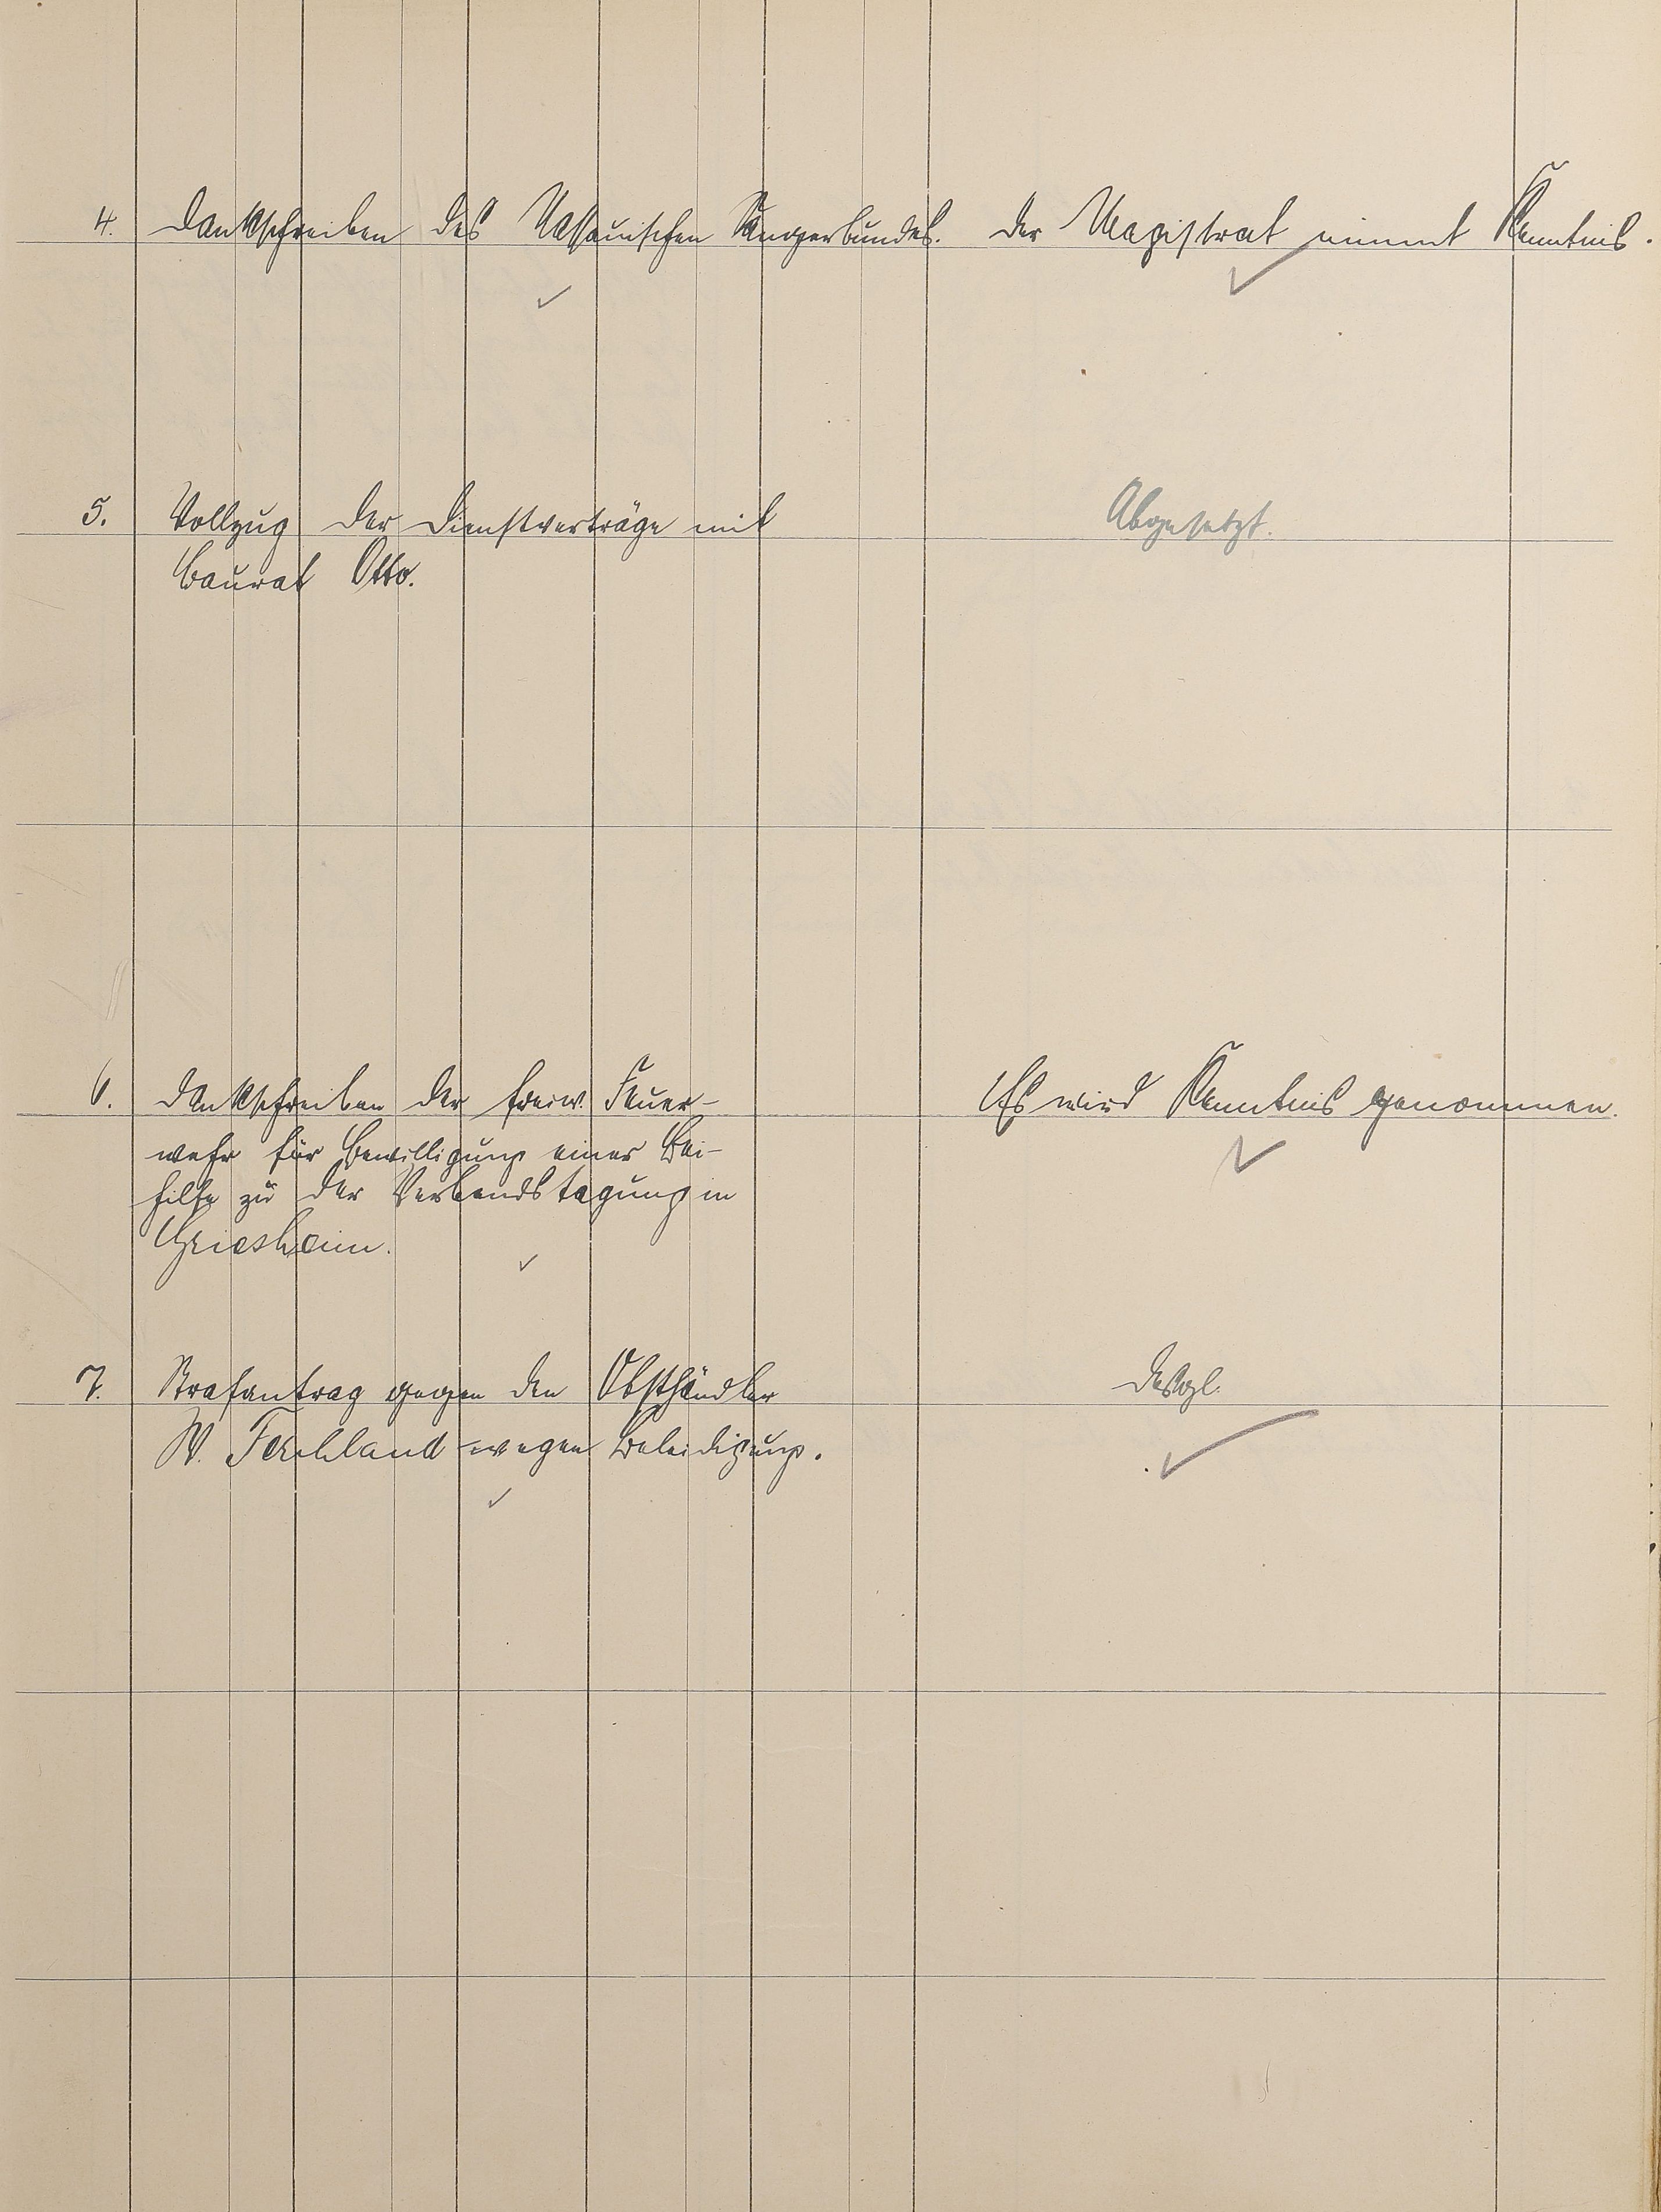 4. Dankschreiben des Nassauischen Sängerbundes. Der Magistrat nimmt Kenntnis.
5. Vollzug der Dienstverträge mit Abgesetzt.
Baurat Otto.
6. Dankschreiben der freiw. Feuer- Es wird Kenntnis genommen.
wehr für Bewilligung einer Bei-
hilfe zu der Verbandstagung in
Griesheim.
7. Strafantrag gegen den Obsthändler Desgl.
W. Ferchland wegen Beleidigung.